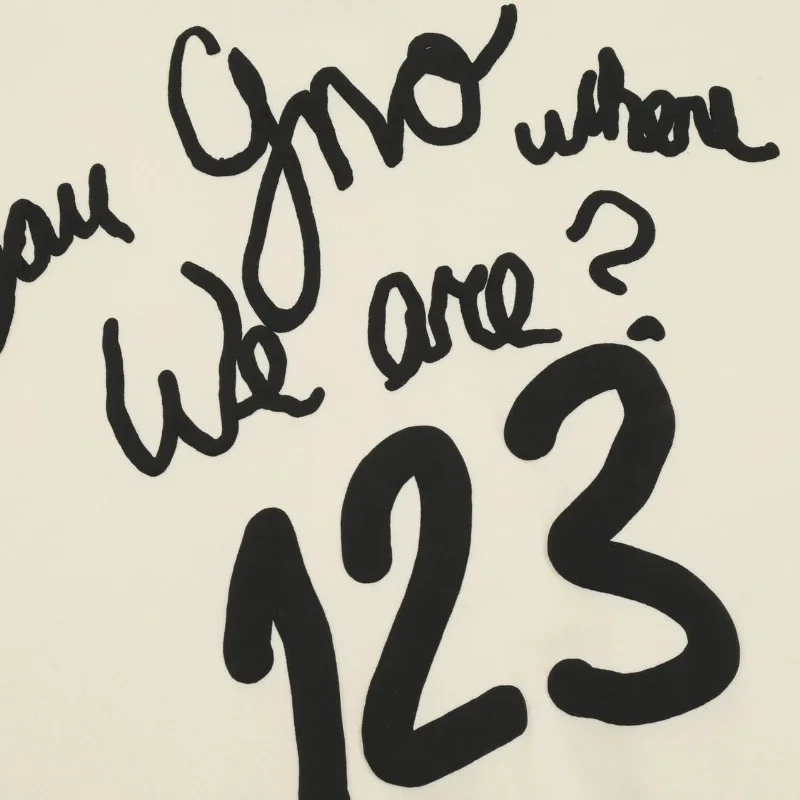 you gno where
We are?
123